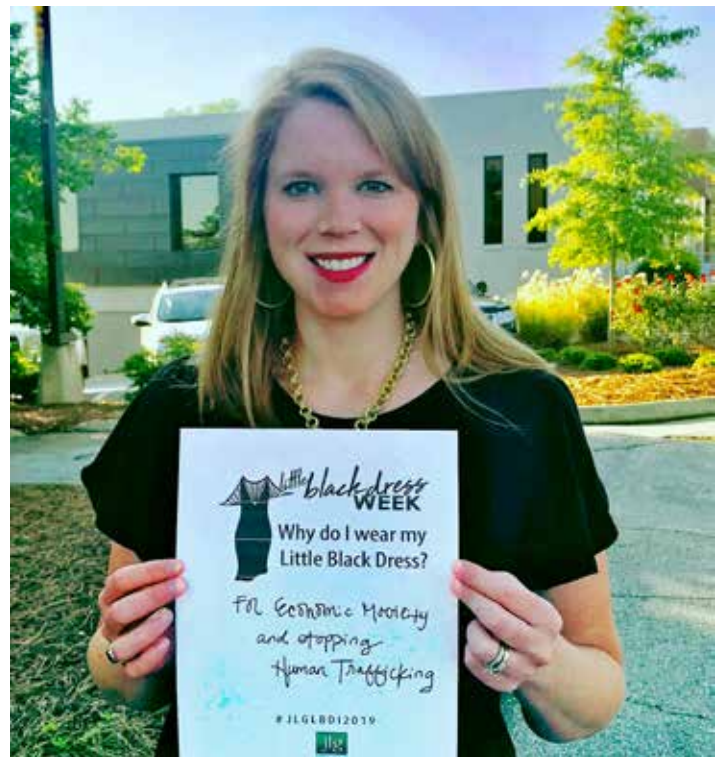 little black dress
WEEK
Why do I wear my
Little Black Dress?
For Economic Mobility
and stopping
Human Trafficking
#JLGLBDI2019
jlg